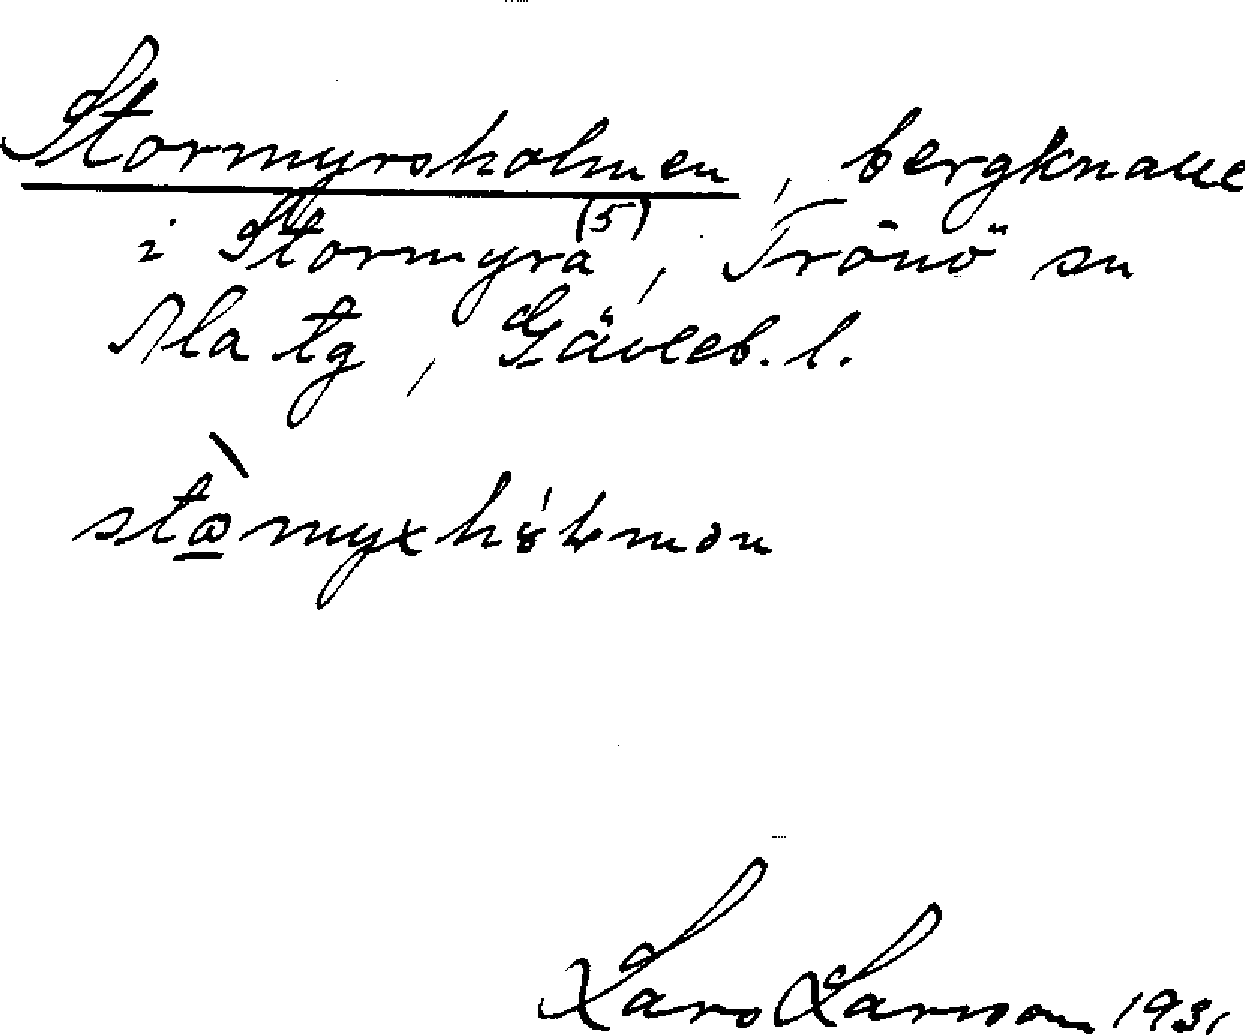 Stormyrsholmen, bergknalle
i Stormyra (5), Trönö sn
Ala tg, Gävleb. l.
Lars Larsson 1931